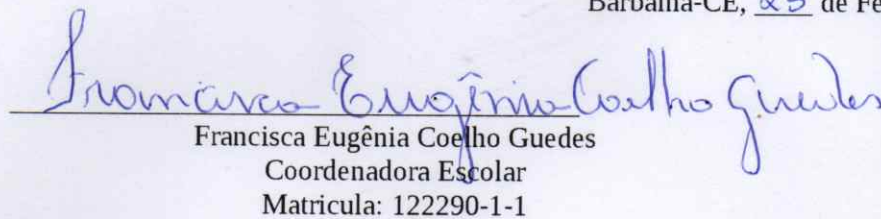 Barbalha-CE, 25 de Fe
Francisca Eugênia Coelho Guedes
Francisca Eugênia Coelho Guedes
Coordenadora Escolar
Matricula: 122290-1-1